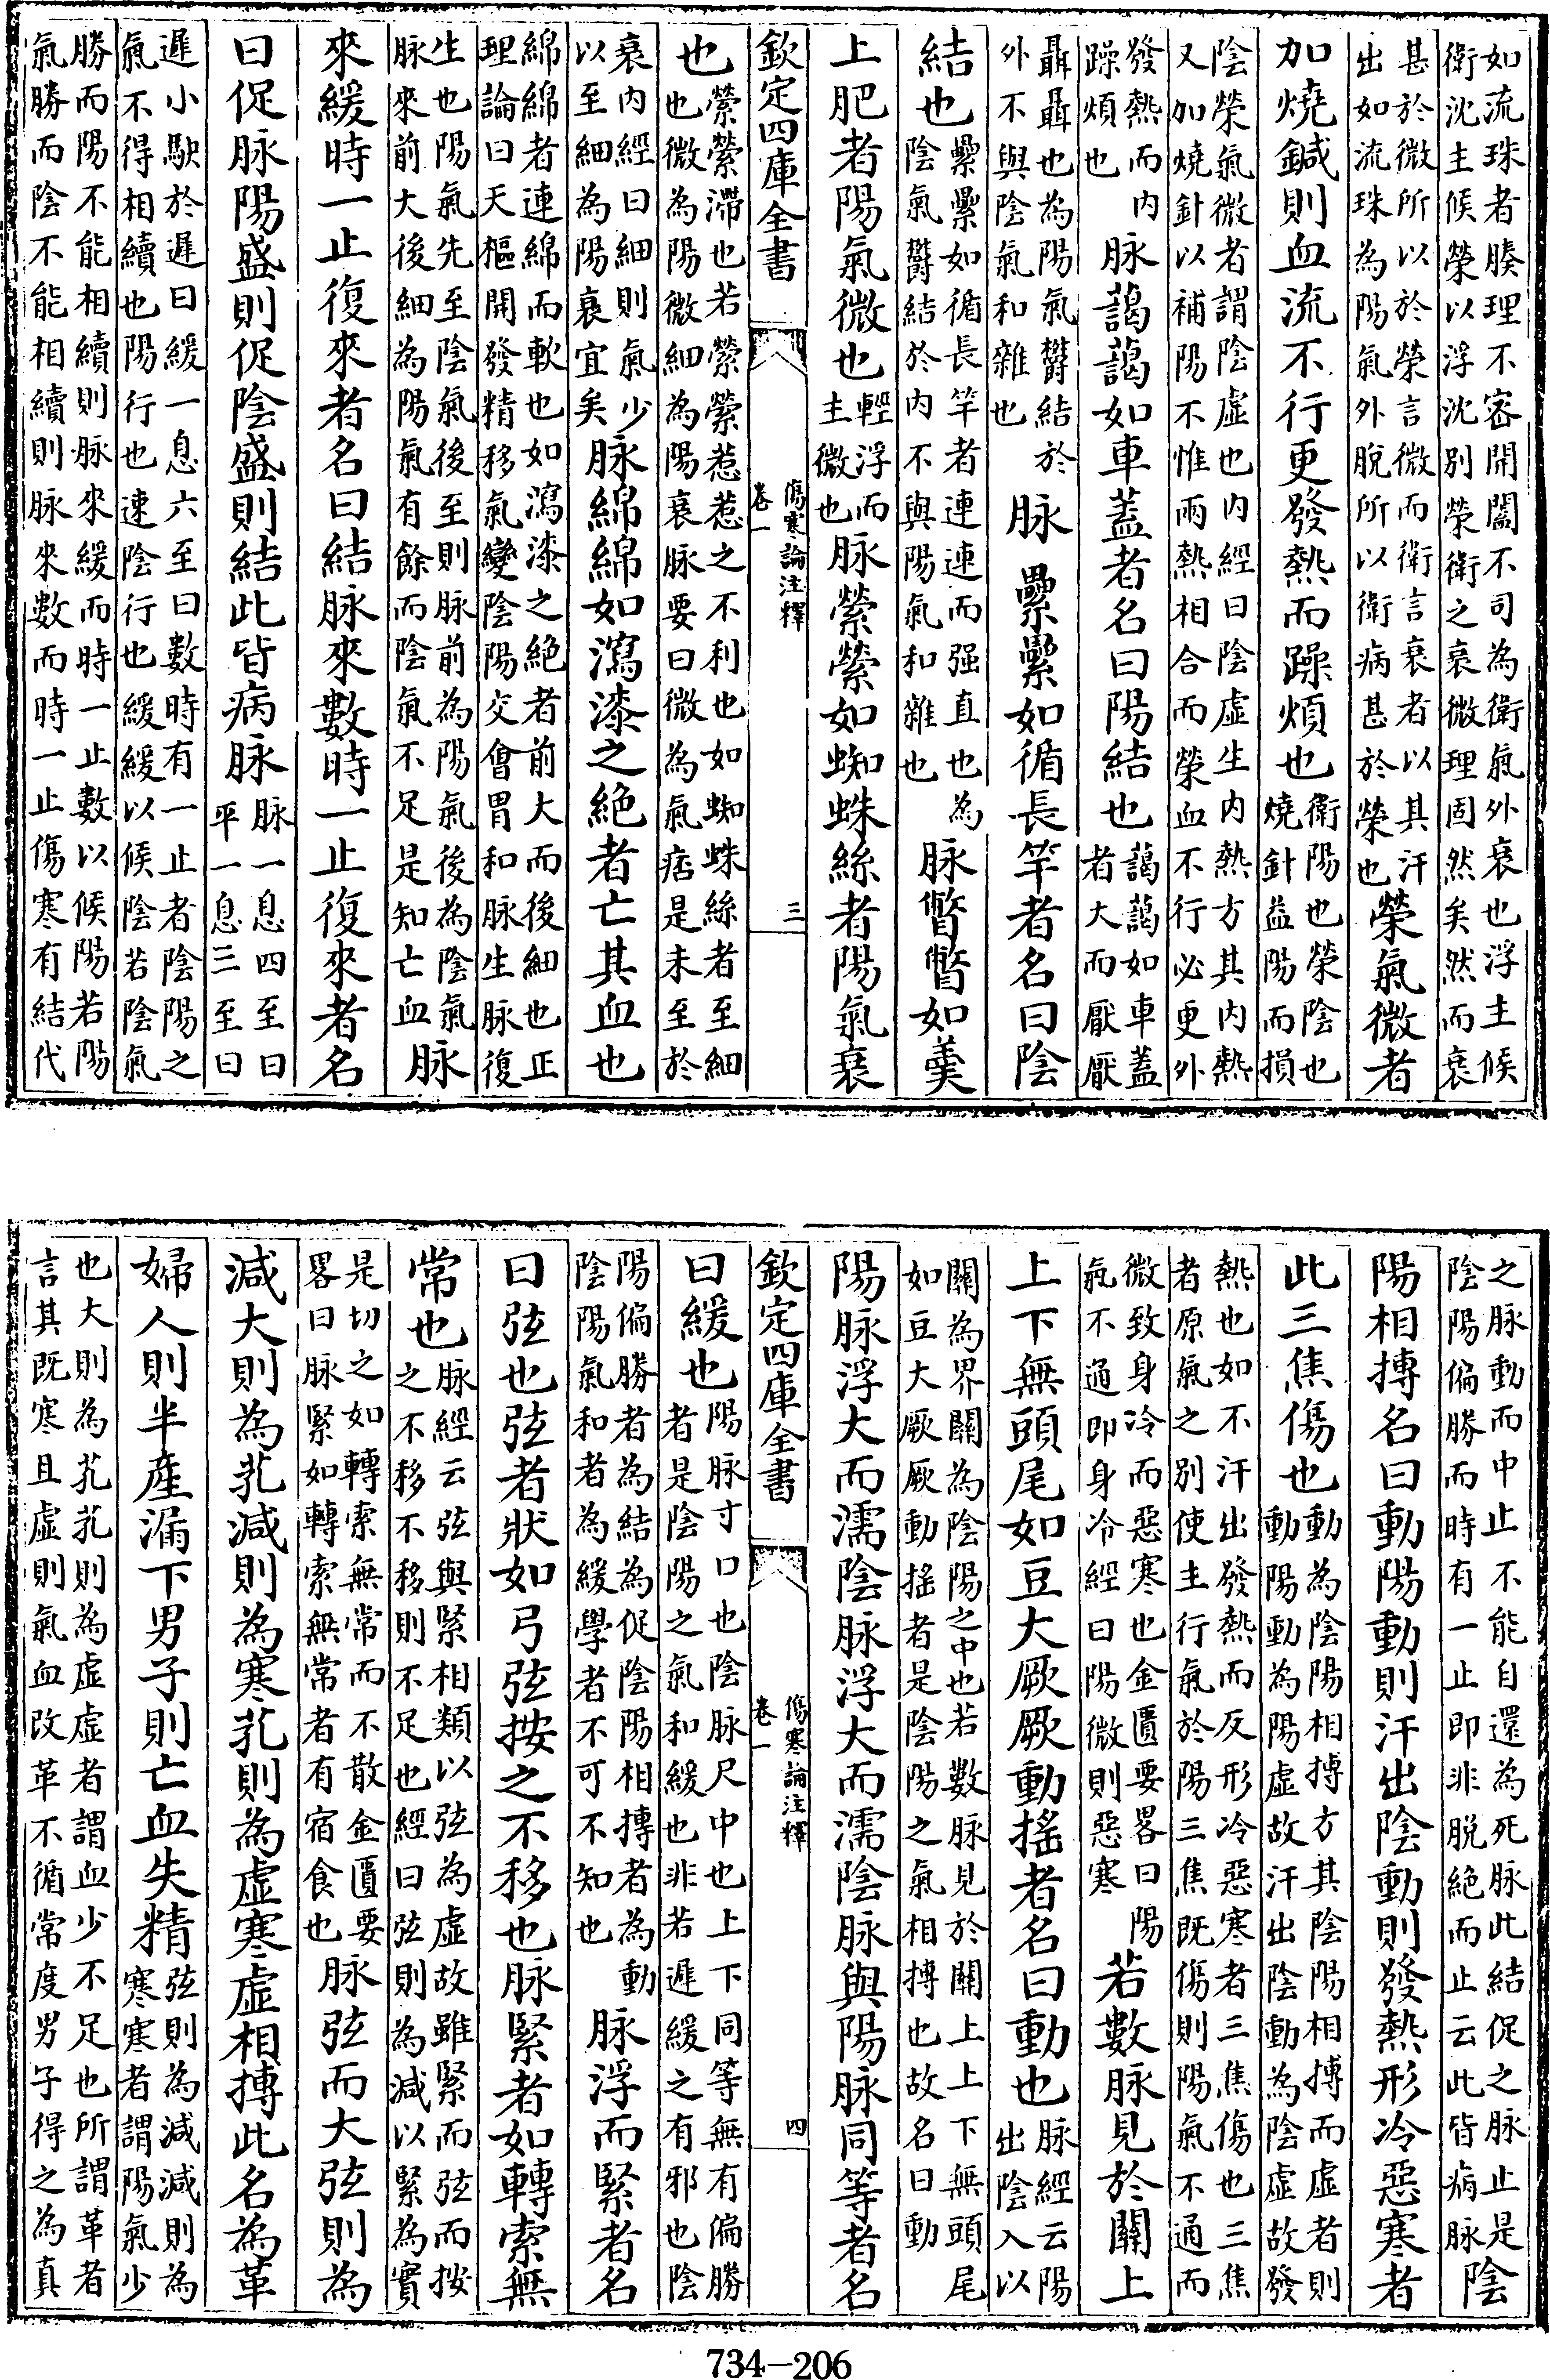 如流珠者腠理不密開闔不司為衛氣外衰也浮主候
衛沈主候榮以浮沈別榮衛之衰微理固然矣然而衰
甚於微所以於榮言微而衛言衰者以其汗
出如流珠為陽氣外脫所以衛病甚於榮也
榮氣微者
加燒鍼則血流不行更發熱而躁煩也
衛陽也榮陰也
燒針益陽而損
陰榮氣微者謂陰虛也內經曰陰虛生內熱方其內熱
又加燒針以補陽不惟兩熱相合而榮血不行必更外
發熱而內
躁煩也
脉藹藹如車蓋者名曰陽結也
藹藹如車蓋
者大而厭厭
聶聶也為陽氣欝結於
外不與陰氣和雜也
脉纍纍如循長竿者名曰陰
結也
纍纍如循長竿者連連而强直也為
陰氣欝結於內不與陽氣和雜也
脉瞥瞥如羹
上肥者陽氣微也
輕浮而
主微也
脉縈縈如蜘蛛絲者陽氣衰
欽定四庫全書
傷寒論注釋
卷一
三
也
縈縈滯也若縈縈惹惹之不利也如蜘蛛絲者至細
也微為陽微細為陽衰脉要曰微為氣痞是未至於
衰內經曰細則氣少
以至細為陽衰宜矣
脉綿綿如瀉漆之絕者亡其血也
綿綿者連綿而軟也如瀉漆之絕者前大而後細也正
理論曰天樞開發精移氣變陰陽交會胃和脉生脉復
生也陽氣先至陰氣後至則脉前為陽氣後為陰氣
脉來前大後細為陽氣有餘而陰氣不足是知亡血
脉
來緩時一止復來者名曰結脉來數時一止復來者名
曰促脉陽盛則促陰盛則結此皆病脉
脉一息四至曰
平一息三至曰
遲小駃於遲曰緩一息六至曰數時有一止者陰陽之
氣不得相續也陽行也速陰行也緩緩以候陰若陰氣
勝而陽不能相續則脉來緩而時一止數以候陽若陽
氣勝而陰不能相續則脉來數而時一止傷寒有結代
之脉動而中止不能自還為死脉此結促之脉止是
陰陽偏勝而時有一止即非脫絕而止云此皆病脉
陰
陽相摶名曰動陽動則汗出陰動則發熱形冷惡寒者
此三焦傷也
動為陰陽相摶方其陰陽相摶而虛者則
動陽動為陽虛故汗出陰動為陰虛故發
熱也如不汗出發熱而反形冷惡寒者三焦傷也三焦
者原氣之別使主行氣於陽三焦既傷則陽氣不通而
微致身冷而惡寒也金匱要畧曰陽
氣不通即身冷經曰陽微則惡寒
若數脉見於關上
上下無頭尾如豆大厥厥動搖者名曰動也
脉經云陽
出陰入以
關為界關為陰陽之中也若數脉見於關上上下無頭尾
如豆大厥厥動搖者是陰陽之氣相摶也故名曰動
陽脉浮大而濡陰脉浮大而濡陰脉與陽脉同等者名
欽定四庫全書
傷寒論注釋
卷一
四
曰緩也
陽脉寸口也陰脉尺中也上下同等無有偏勝
者是陰陽之氣和緩也非若遲緩之有邪也陰
陽偏勝者為結為促陰陽相摶者為動
陰陽氣和者為緩學者不可不知也
脉浮而緊者名
曰弦也弦者狀如弓弦按之不移也脉緊者如轉索無
常也
脉經云弦與緊相類以弦為虛故雖緊而弦而按
之不移不移則不足也經曰弦則為減以緊為實
是切之如轉索無常而不散金匱要
畧曰脉緊如轉索無常者有宿食也
脉弦而大弦則為
減大則為芤減則為寒芤則為虛寒虛相摶此名為革
婦人則半產漏下男子則亡血失精
弦則為減減則為
寒寒者謂陽氣少
也大則為芤芤則為虛虛者謂血少不足也所謂革者
言其既寒且虛則氣血改革不循常度男子得之為真
734-206